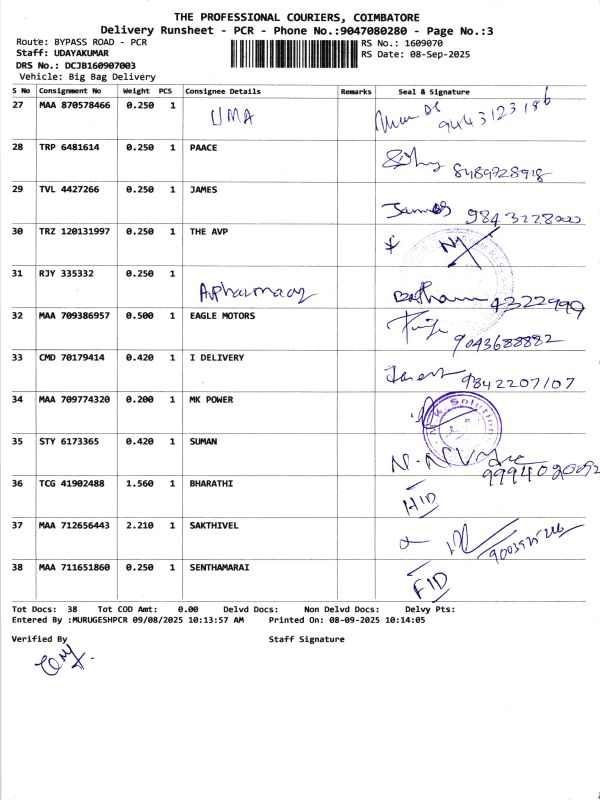 THE PROFESSIONAL COURIERS, COIMBATORE
Delivery Runsheet - PCR - Phone No.:9047080280 - Page No.:3
Route: BYPASS ROAD - PCR
RS No.: 1609070
Staff: UDAYAKUMAR
RS Date: 08-Sep-2025
DRS No.: DCJB160907003
Vehicle: Big Bag Delivery
S No Consignment No Weight PCS Consignee Details Remarks Seal & Signature
27 MAA 870578466 0.250 1 UMA 9443123186
28 TRP 6481614 0.250 1 PAACE 8489728918
29 TVL 4427266 0.250 1 JAMES James 9843228000
30 TRZ 120131997 0.250 1 THE AVP
31 RJY 335332 0.250 1 A.pharmacy 4322999
32 MAA 709386957 0.500 1 EAGLE MOTORS 9043688882
33 CMD 70179414 0.420 1 I DELIVERY 9842207107
34 MAA 709774320 0.200 1 MK POWER Solution
35 STY 6173365 0.420 1 SUMAN
36 TCG 41902488 1.560 1 BHARATHI HID
37 MAA 712656443 2.210 1 SAKTHIVEL
38 MAA 711651860 0.250 1 SENTHAMARAI FID
Tot Docs: 38 Tot COD Amt: 0.00 Delvd Docs: Non Delvd Docs: Delvy Pts:
Entered By :MURUGESHPCR 09/08/2025 10:13:57 AM Printed On: 08-09-2025 10:14:05
Verified By Staff Signature